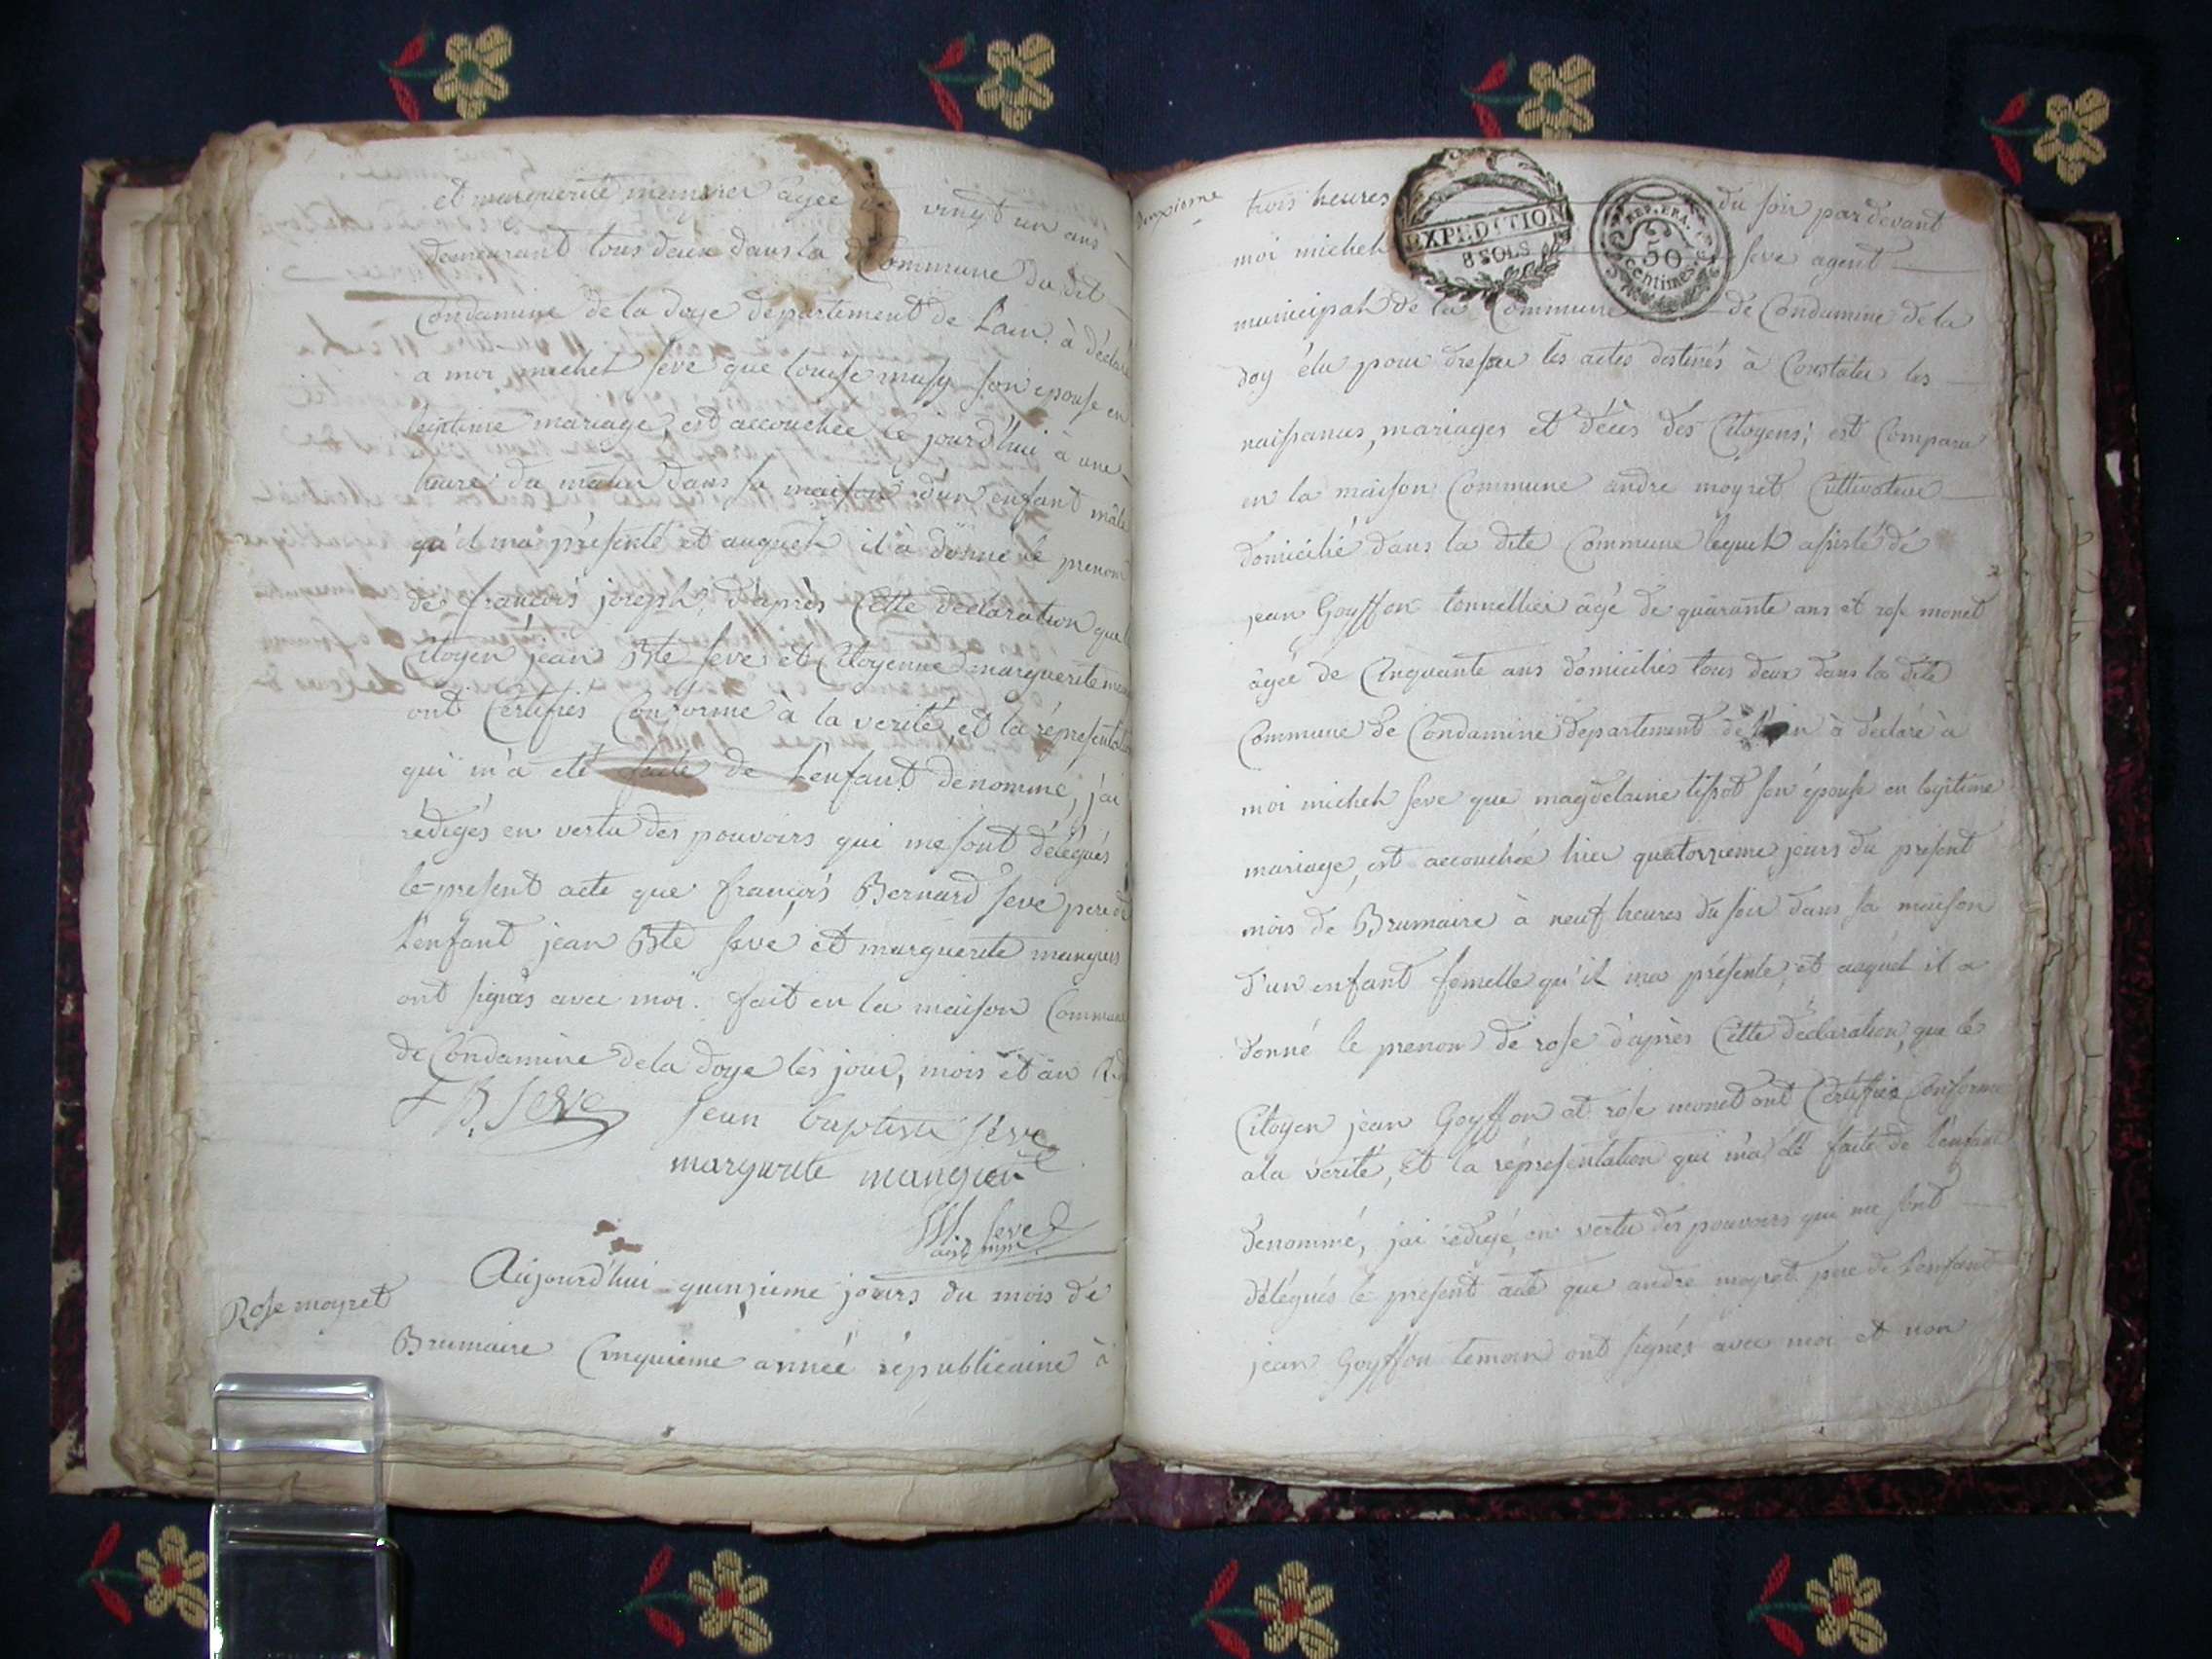 et marguerite âgée de vingt un ans
demeurant tous deux dans la Commune du dit
Condamine de la doye département de Lain. à déclaré
a moi michel seve que louise musy son epouse en
légitime mariage, est accouchée le jourd'hui à une
heure du matin dans sa maison d'un enfant mâle
qu'il ma présenté et auquel il à donné le prenom
de françois joseph, d'après Cette declaration que
Citoyen jean Bte seve et Citoyenne marguerite
ont Certifiés Conforme à la verité, et la réprésentation
qui m'a été faite de L'enfant dénommé, j'ai
rédigés en vertu des pouvoirs qui me sont délégués
le present acte que françois Bernard seve pere de
L'enfant jean Bte sevé et marguerite mangier
ont signés avec moi. fait en la maison Commune
de Condamine dela doye les jour, mois et an
f B. Seve jean baptiste séve
margurite mangier
M. Seve
agt mpal
Rose moyret
Aujourd'hui quinzieme jours du mois de
Brumaire Cinquieme année républicaine à
Deuxieme
trois heures du soir pardevant
EXPEDITION
8 SOLS
REP. FRA.
50
centimes
moi michel seve agent
municipal de la Commune de Condamine de la
doy élu pour dresser les actes destinés à Constater les
naissances, mariages et décès des Citoyens; est Comparu
en la maison Commune andre moyret Cultivateur
domicilié dans la dite Commune lequel assisté de
jean Goyffon tonnellier âgé de quarante ans et rose monet
âgée de Cinquante ans domiciliés tous deux dans la dite
Commune de Condamine département de à déclaré à
moi michel seve que magdelaine tissot son épouse en legitime
mariage, est accouchée hier quatorzieme jours du présent
mois de Brumaire à neuf heures du soir dans sa maison
d'un enfant femelle qu'il ma présenté, et auquel il a
donné le prenom de rose d'après Cette déclaration, que le
Citoyen jean Goyffon et rose monet ont Certifiés Conforme
ala verité, Et la réprésentation qui m'a été faite de L'enfant
denommé, j'ai rédigé, en vertu des pouvoirs qui me sont
délégués le présent acte que andre moyret pere de L'enfant
jean Goyffon temoin ont signés avec moi et non